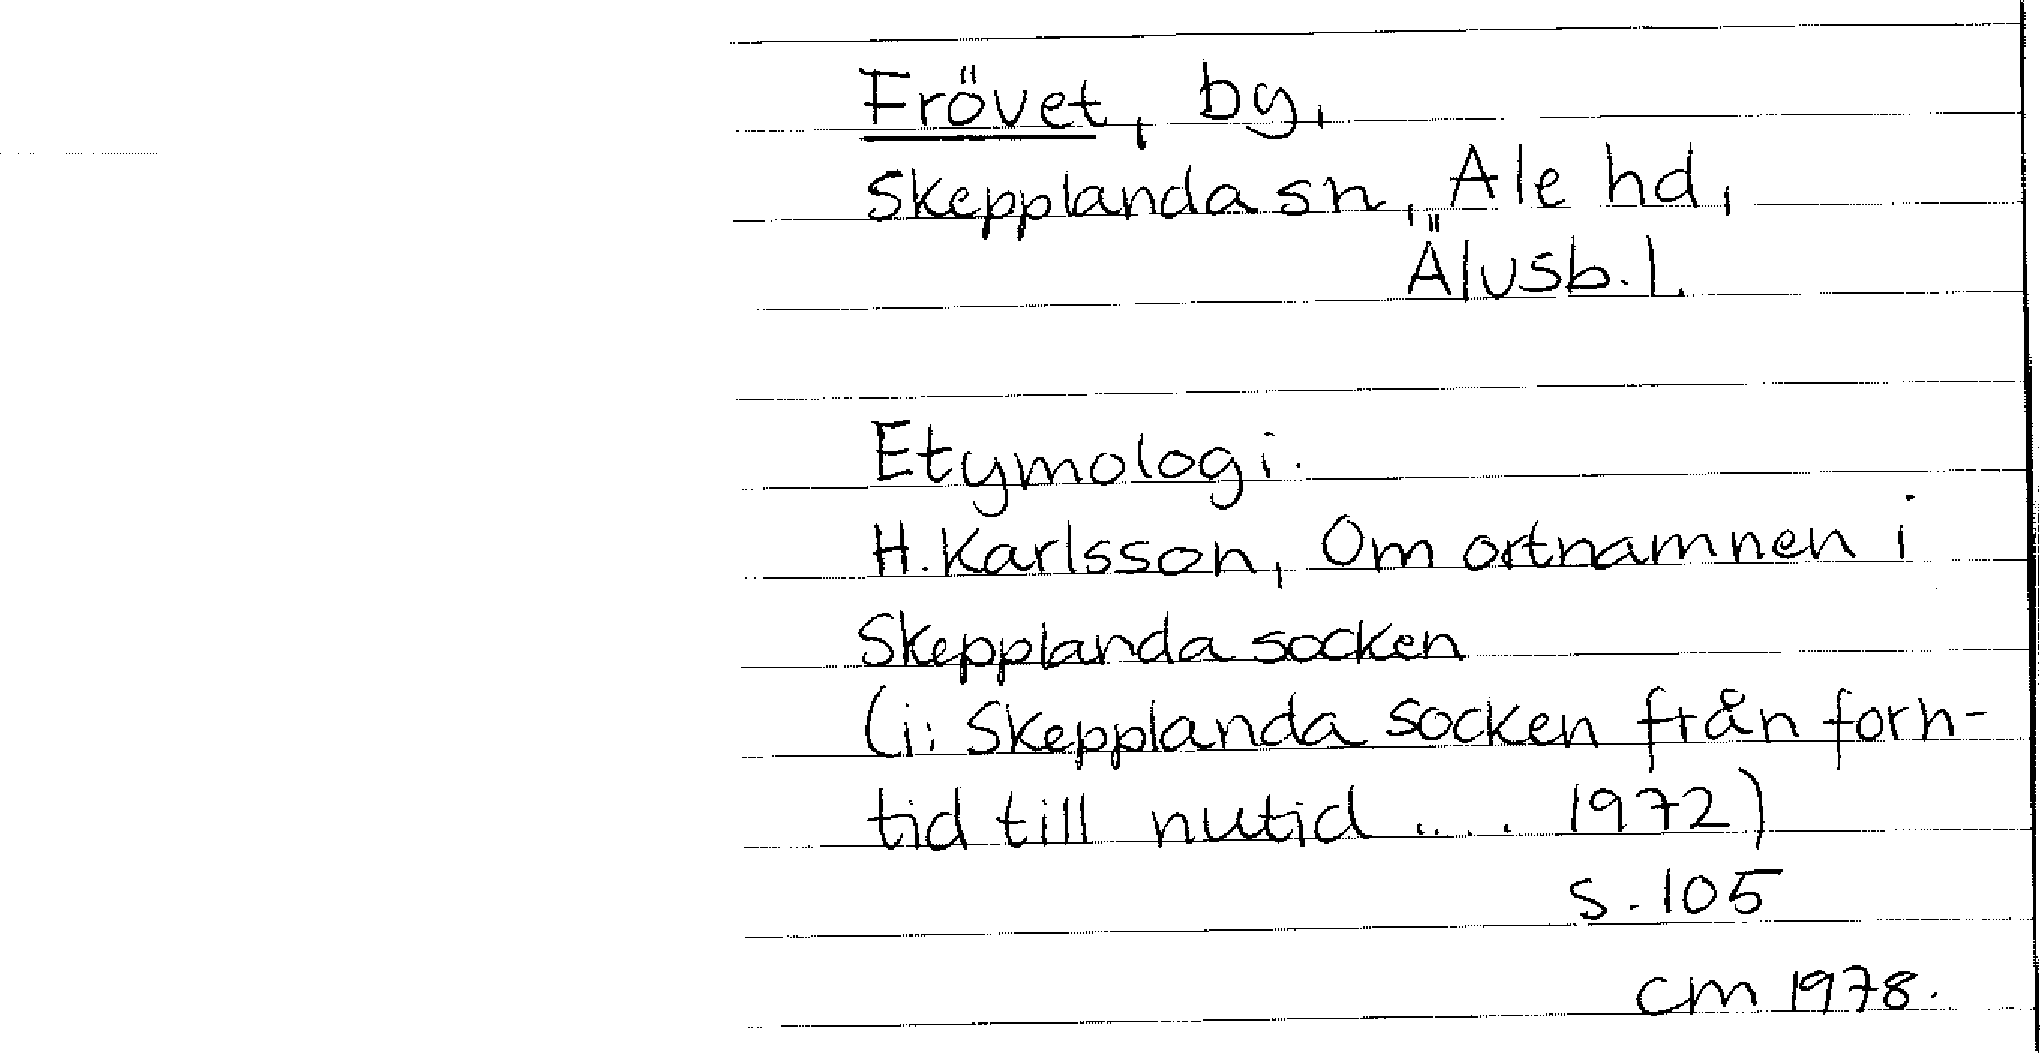 Frövet, by,
Skepplanda sn, Ale hd,
Älvsb. l.
Etymologi.
H. Karlsson, Om ortnamnen i
Skepplanda socken
(i: Skepplanda socken från forn-
tid till nutid .... 1972)
s. 105
cm 1978.